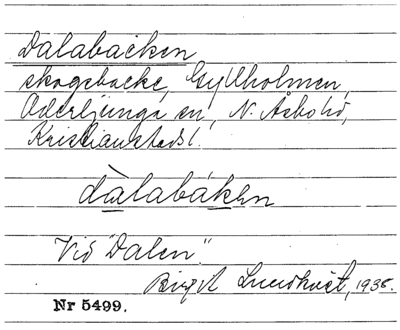 Dalabacken
skogsbacke, Gyllholmen,
Oderljunga sn, N. Åsbo hd,
Kristianstads l.
dàlabáken
Vid "Dalen".
Birgit Lundkvist, 1935.
Nr 5499.